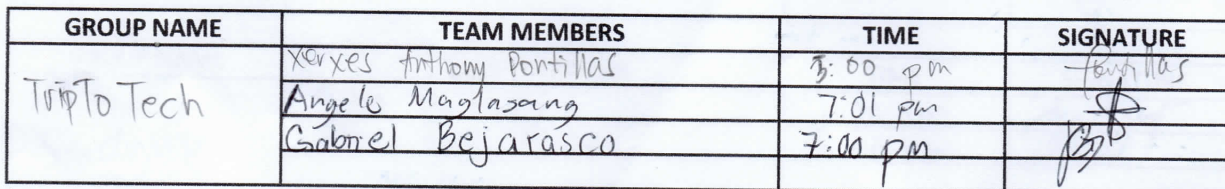 GROUP NAME TEAM MEMBERS TIME SIGNATURE
Xerxes Anthony Pontillas 5:00 pm Pontillas
TripTo Tech
Angelo Maglasang 7:01 pm
Gabriel Bejarasco 7:00 pm